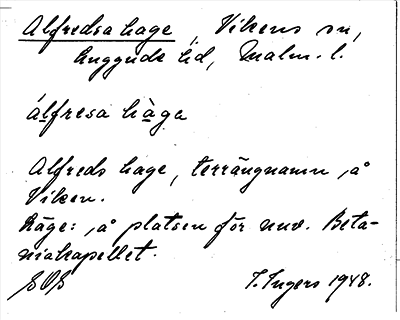 Alfredsa hage, Vikens sn,
Luggude hd, Malm. l.
álfresa hàga
Alfreds hage, terrängnamn, å
Viken.
Läge: å platsen för nuv. Beta-
niakapellet.
I. Ingers 1948.